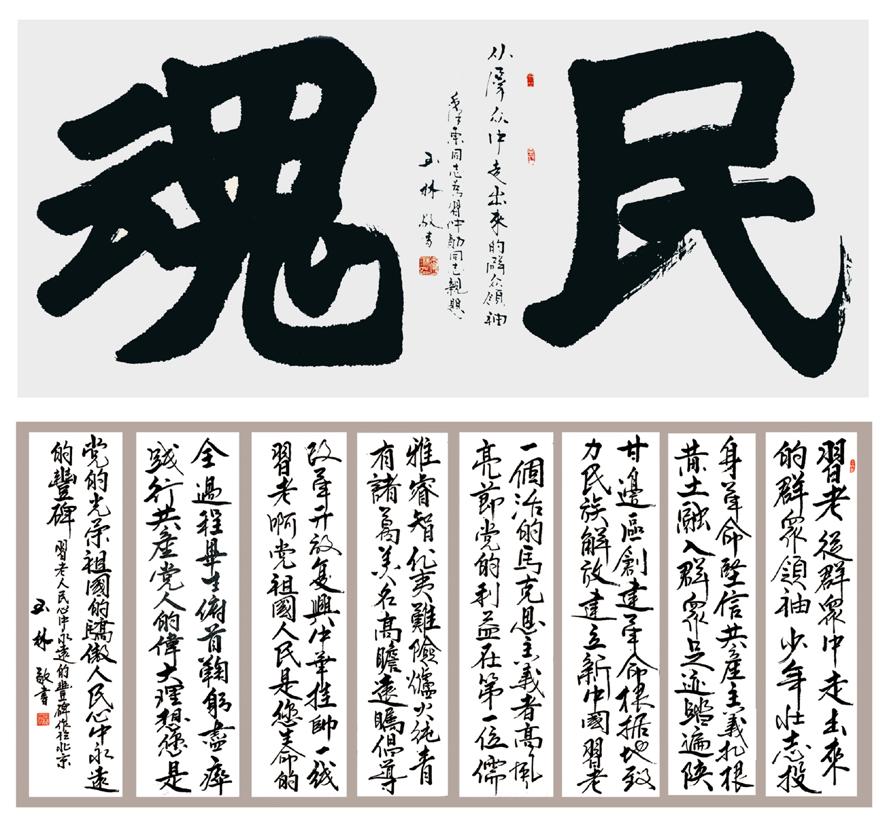 民
从群众中走出來的群众領袖
毛泽东同志為習仲勛同志親題
玉林敬書
魂
習老從群眾中走出來
的群眾領袖少年壯志投
身革命堅信共產主義扎根
黄土融入群眾足迹踏遍陝
甘邊區創建革命根据地致
力民族解放建立新中國習老
一個活的馬克思主義者高風
亮節党的利益在第一位儒
雅睿智化夷難險爐火純青
有諸葛美名高瞻遠矚倡導
改革开放复興中華挂帥一线
習老啊党祖國人民是您生命的
全過程畢生俯首鞠躬盡瘁
践行共產党人的偉大理想您是
党的光榮祖國的驕傲人民心中永遠
的豐碑 習老人民心中永遠的豐碑作於北京
玉林敬書